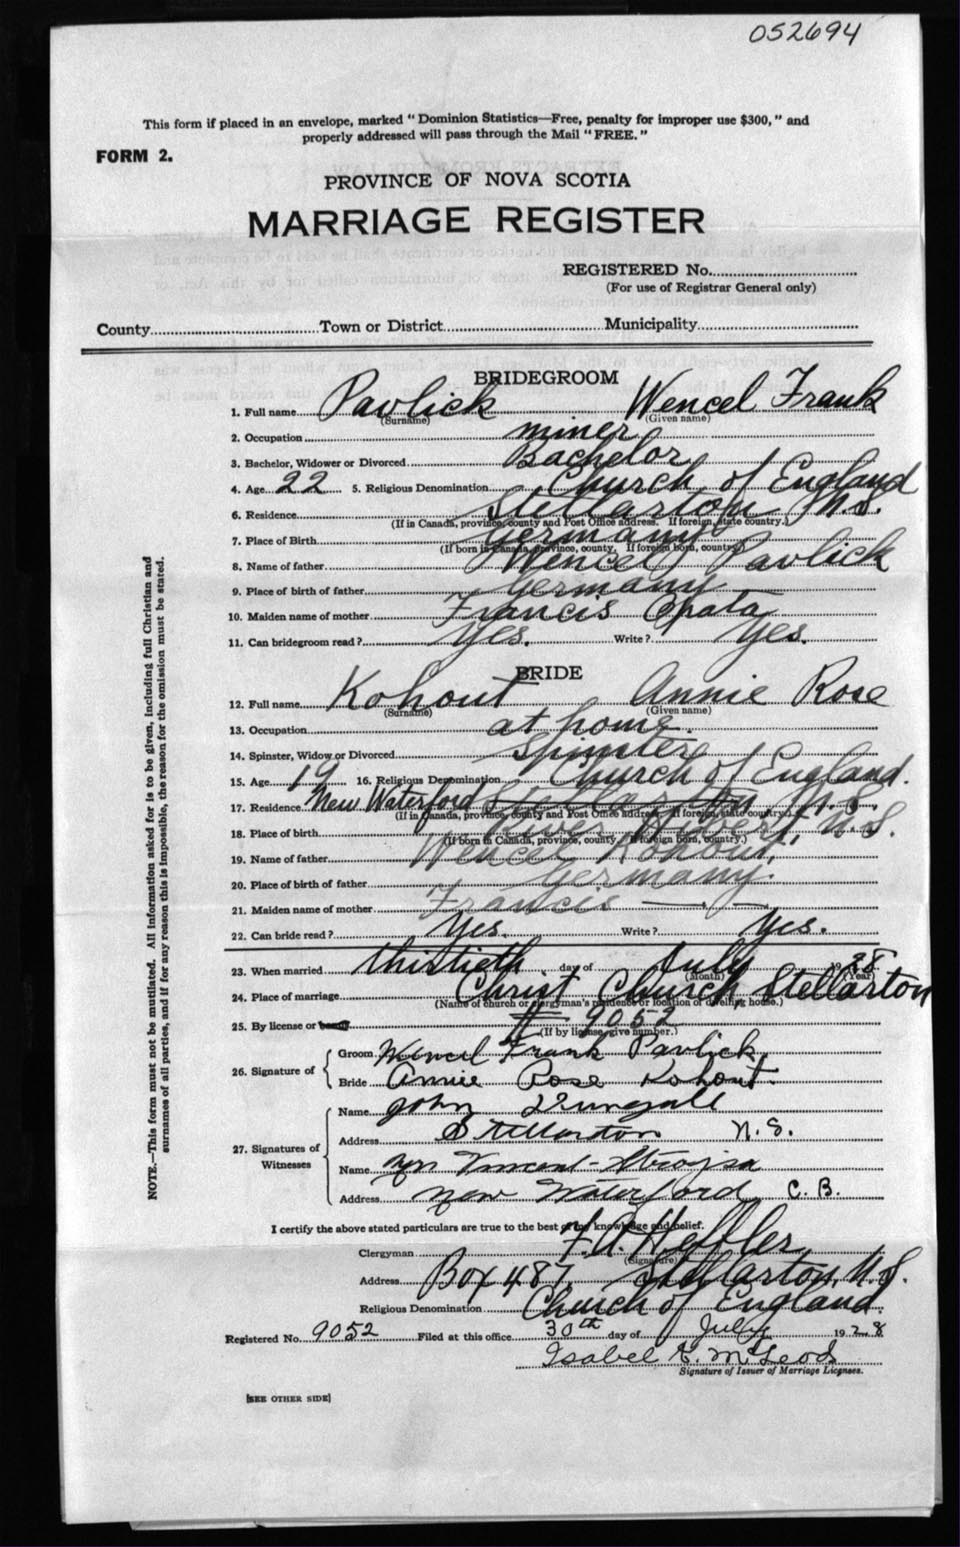 052694
This form if placed in an envelope, marked "Dominion Statistics—Free, penalty for improper use $300," and
properly addressed will pass through the Mail "FREE."
FORM 2.
PROVINCE OF NOVA SCOTIA
MARRIAGE REGISTER
REGISTERED No.
(For use of Registrar General only)
County Town or District Municipality
BRIDEGROOM
1. Full name Pavlick Wencel Frank
(Surname) (Given name)
2. Occupation miner
3. Bachelor, Widower or Divorced Bachelor
4. Age 22 5. Religious Denomination Church of England
6. Residence Stellarton N.S.
(If in Canada, province, county and Post Office address. If foreign, state country.)
7. Place of Birth Germany
(If born in Canada, province, county. If foreign born, country)
8. Name of father Wencel Pavlick
9. Place of birth of father Germany
10. Maiden name of mother Francis Opata
11. Can bridegroom read? Yes. Write? Yes.
BRIDE
12. Full name Kohout Annie Rose
(Surname) (Given name)
13. Occupation at home.
14. Spinster, Widow or Divorced Spinster
15. Age 19 16. Religious Denomination Church of England.
17. Residence New Waterford Stellarton N.S.
(If in Canada, province, county and Post Office address. If foreign, state country.)
18. Place of birth River Hebert, N.S.
(If born in Canada, province, county. If foreign born, country.)
19. Name of father Wencel Kohout,
20. Place of birth of father Germany.
21. Maiden name of mother Frances —
22. Can bride read? Yes. Write? Yes.
23. When married thirtieth day of July 1928
(Month) (Year)
24. Place of marriage Christ Church Stellarton
(Name of church or clergyman's residence or location of dwelling house.)
25. By license or # 9052
(If by license, give number.)
26. Signature of
Groom Wencel Frank Pavlick
Bride Annie Rose Kohout.
27. Signatures of Witnesses
Name John
Address Stellarton N.S.
Name Vincent
Address New Waterford C.B.
I certify the above stated particulars are true to the best of my knowledge and belief.
Clergyman F.A. Heffler
(Signature)
Address Box 487, Stellarton, N.S.
Religious Denomination Church of England.
Registered No. 9052 Filed at this office 30th day of July 1928
Isabel G. McLeod
Signature of Issuer of Marriage Licenses.
[SEE OTHER SIDE]
NOTE.—This form must not be mutilated. All information asked for is to be given, including full Christian and
surnames of all parties, and if for any reason this is impossible, the reason for the omission must be stated.